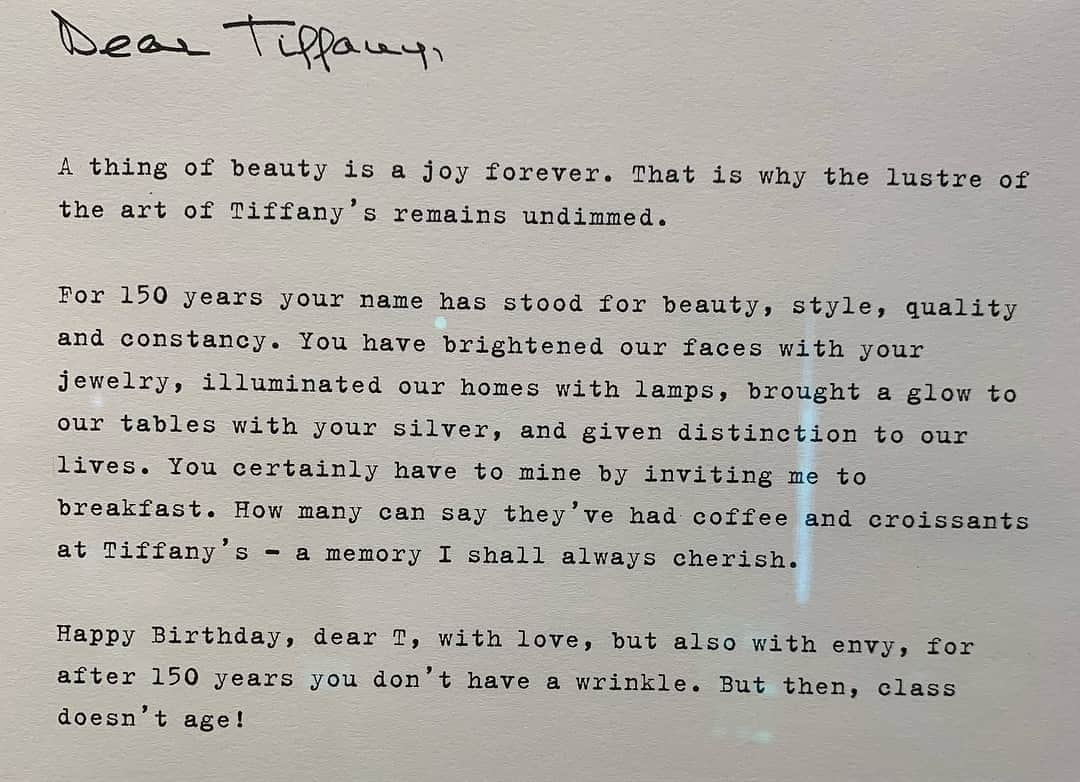 Dear Tiffany,
A thing of beauty is a joy forever. That is why the lustre of
the art of Tiffany's remains undimmed.
For 150 years your name has stood for beauty, style, quality
and constancy. You have brightened our faces with your
jewelry, illuminated our homes with lamps, brought a glow to
our tables with your silver, and given distinction to our
lives. You certainly have to mine by inviting me to
breakfast. How many can say they've had coffee and croissants
at Tiffany's - a memory I shall always cherish.
Happy Birthday, dear T, with love, but also with envy, for
after 150 years you don't have a wrinkle. But then, class
doesn't age!